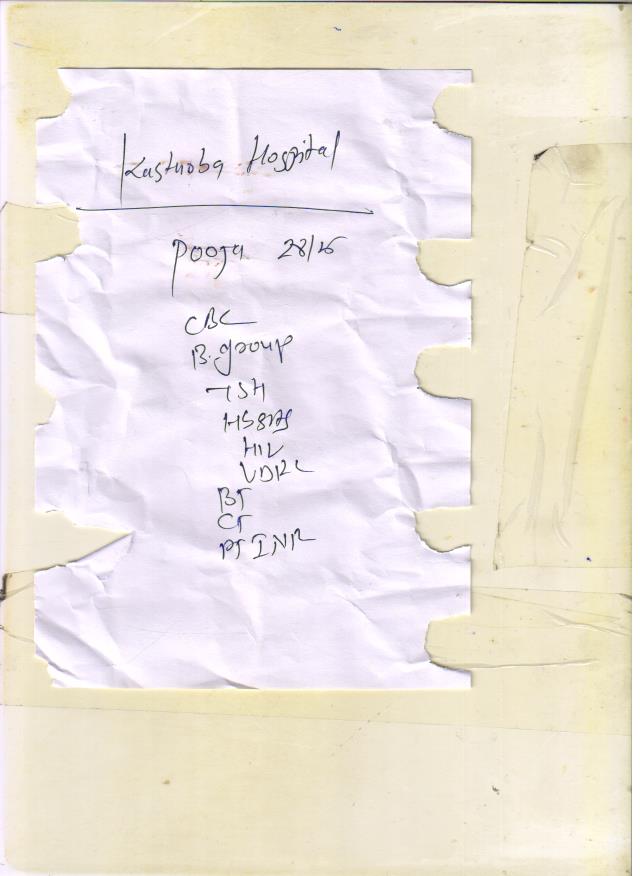 Kasturba Hospital
Pooja
CBC
B. group
TSH
HBsAg
HIV
VDRL
BT
CT
PT INR